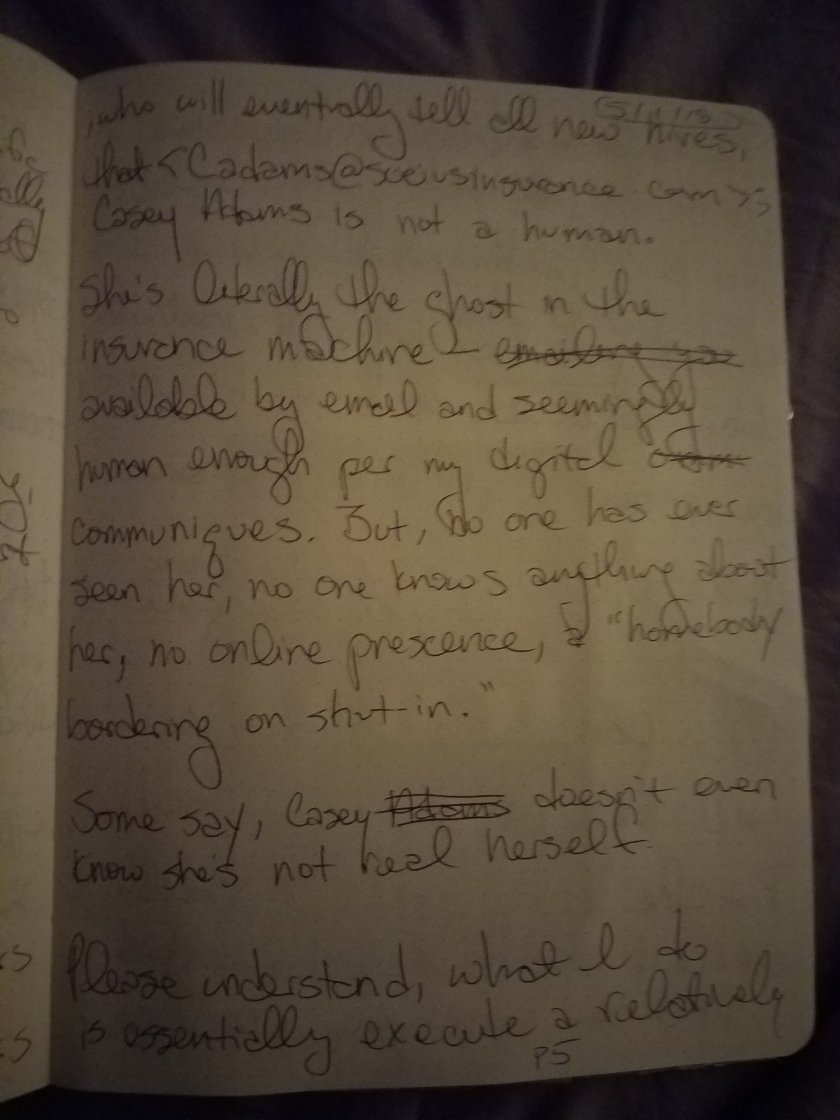 , who will eventually tell all new hires,
that < Cadams@ .com >;
Casey Adams is not a human.
She's literally the ghost in the
insurance machine –
available by email and seemingly
human enough per my digital
communiques. But, no one has ever
seen her, no one knows anything about
her, no online prescence, a "homebody
bordering on shut-in."
Some say, Casey Adams doesn't even
know she's not real herself.
Please understand, what I do
is essentially execute a relatively
P5